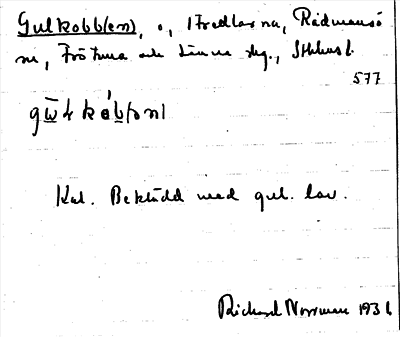 Gulkobb(en), ö, Fredlarna, Rådmansö
sn, Frötuna och Länna skg., Sthlms l.
577
Kal. Beklädd med gul. lav.
Richard Norrman 1936